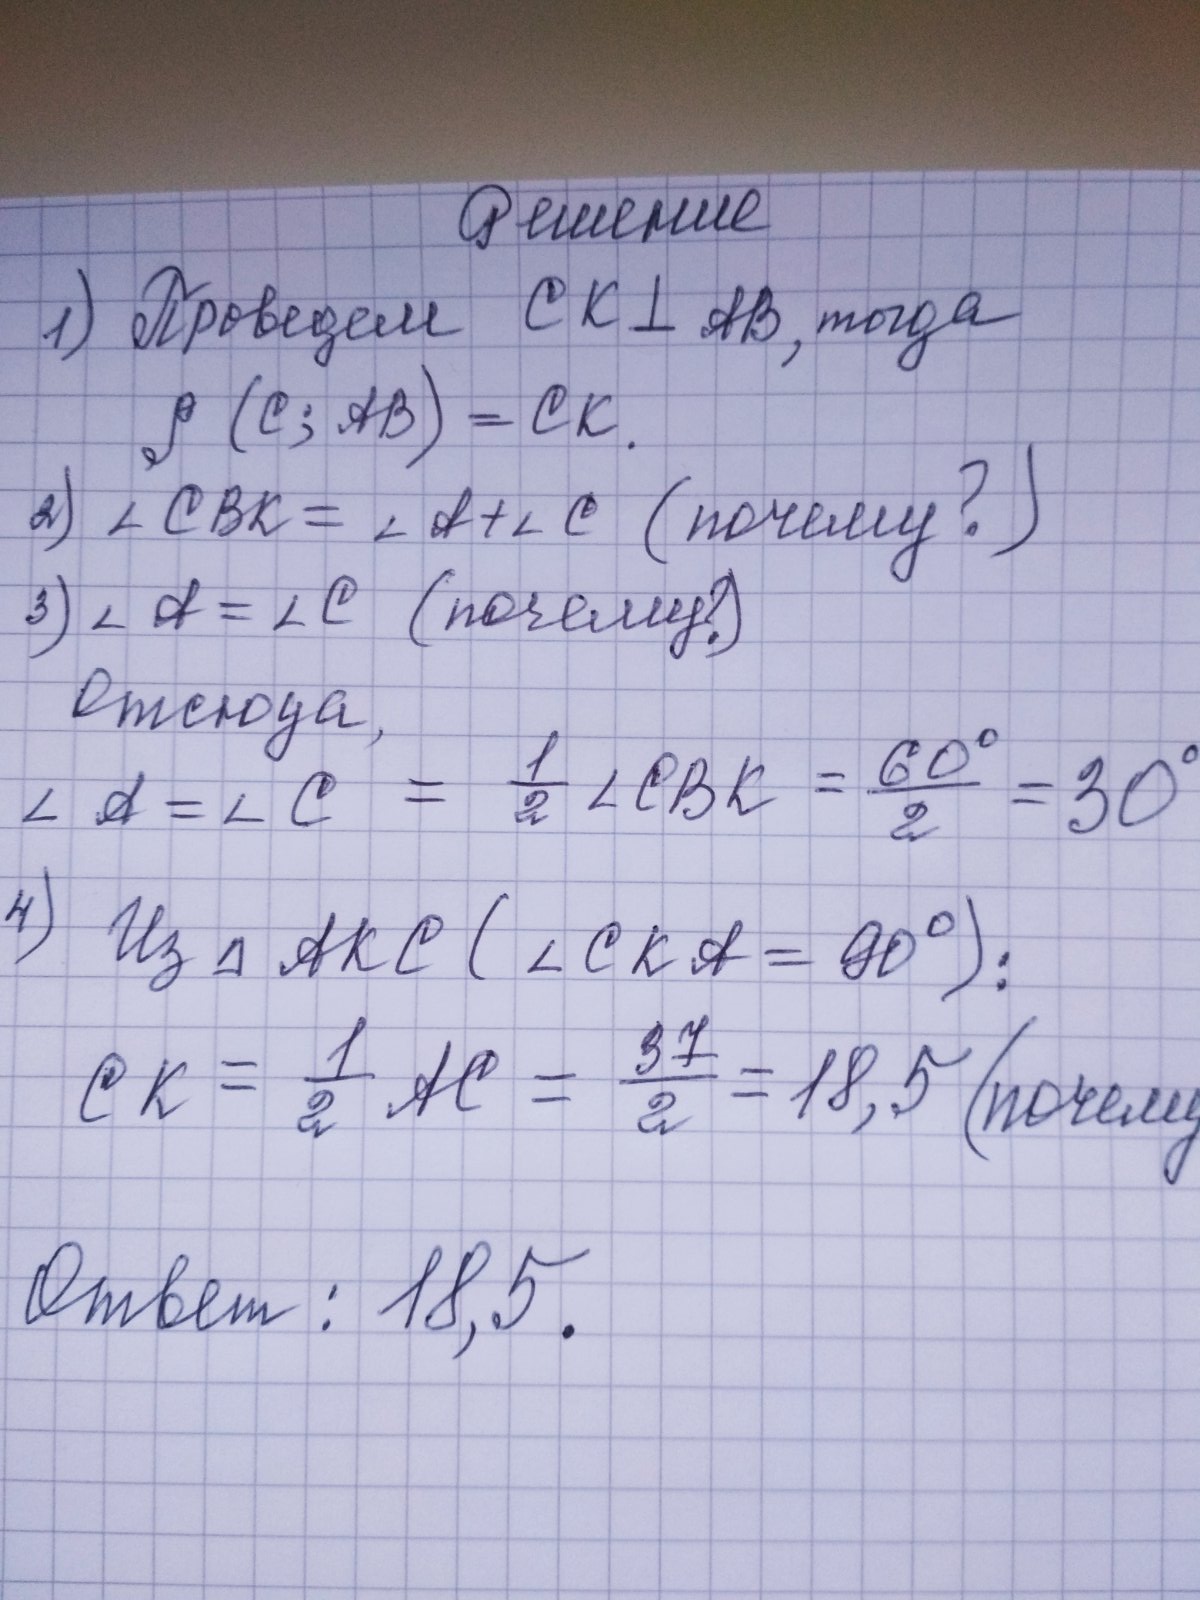 Решение
1) Проведем CK⊥AB, тогда
ρ (C; AB) = CK.
2) ∠CBK = ∠A+∠C (почему?)
3) ∠A = ∠C (почему?)
Отсюда,
∠A = ∠C = 1/2 ∠CBK = 60°/2 = 30°
4) Из △AKC (∠CKA = 90°):
CK = 1/2 AC = 37/2 = 18,5 (почему
Ответ: 18,5.